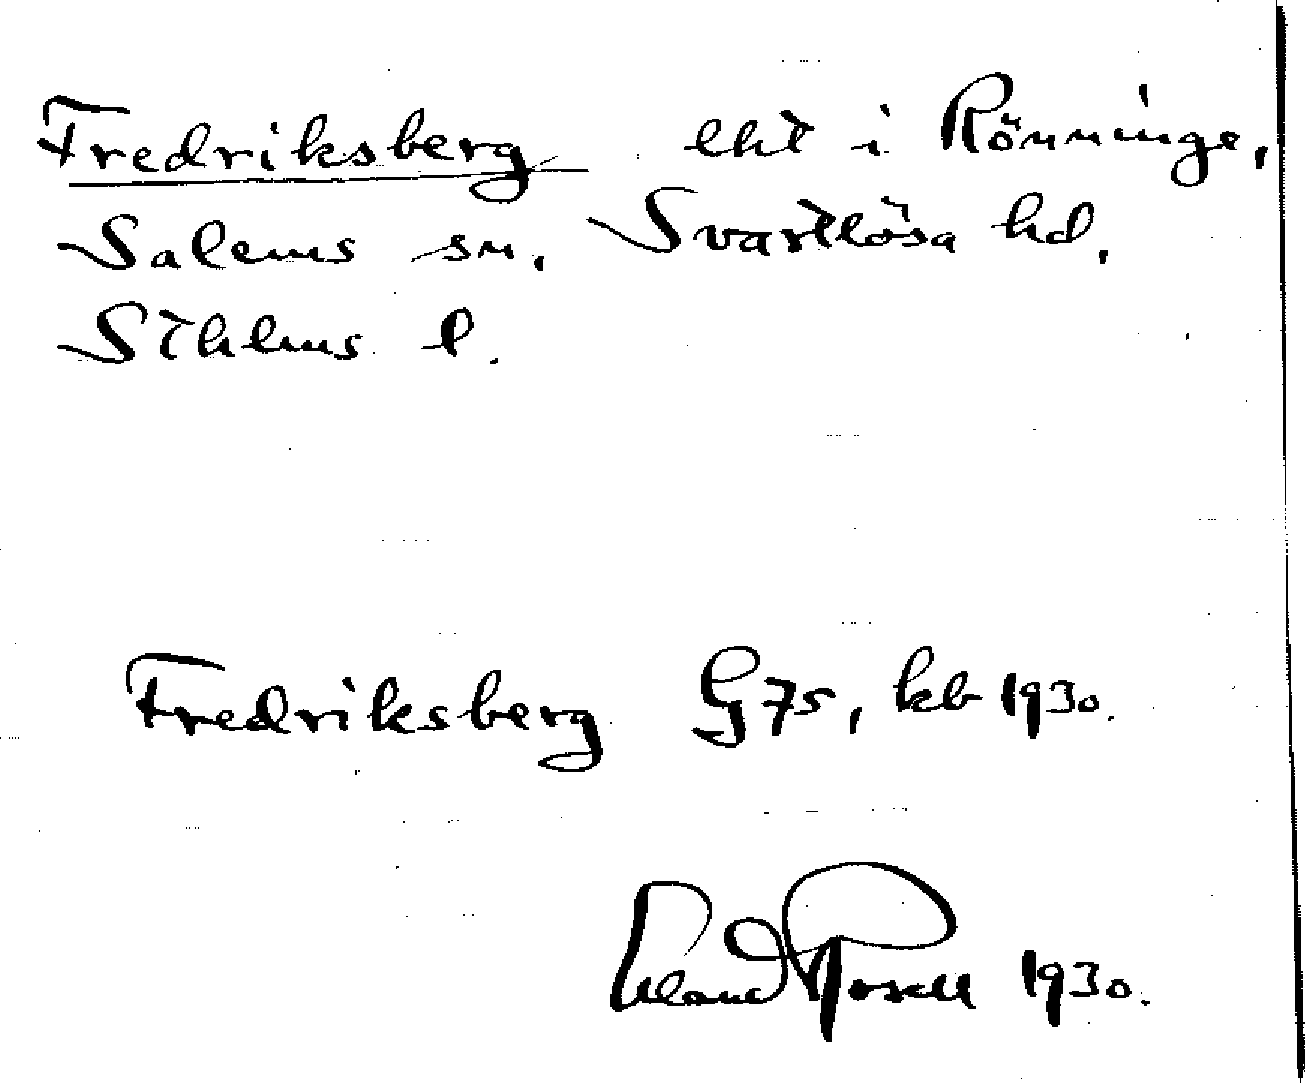 Fredriksberg lht i Rönninge,
Salems sn, Svartlösa hd,
Sthlms l.
Fredriksberg G75, kb 1930.
Erland Rosell 1930.